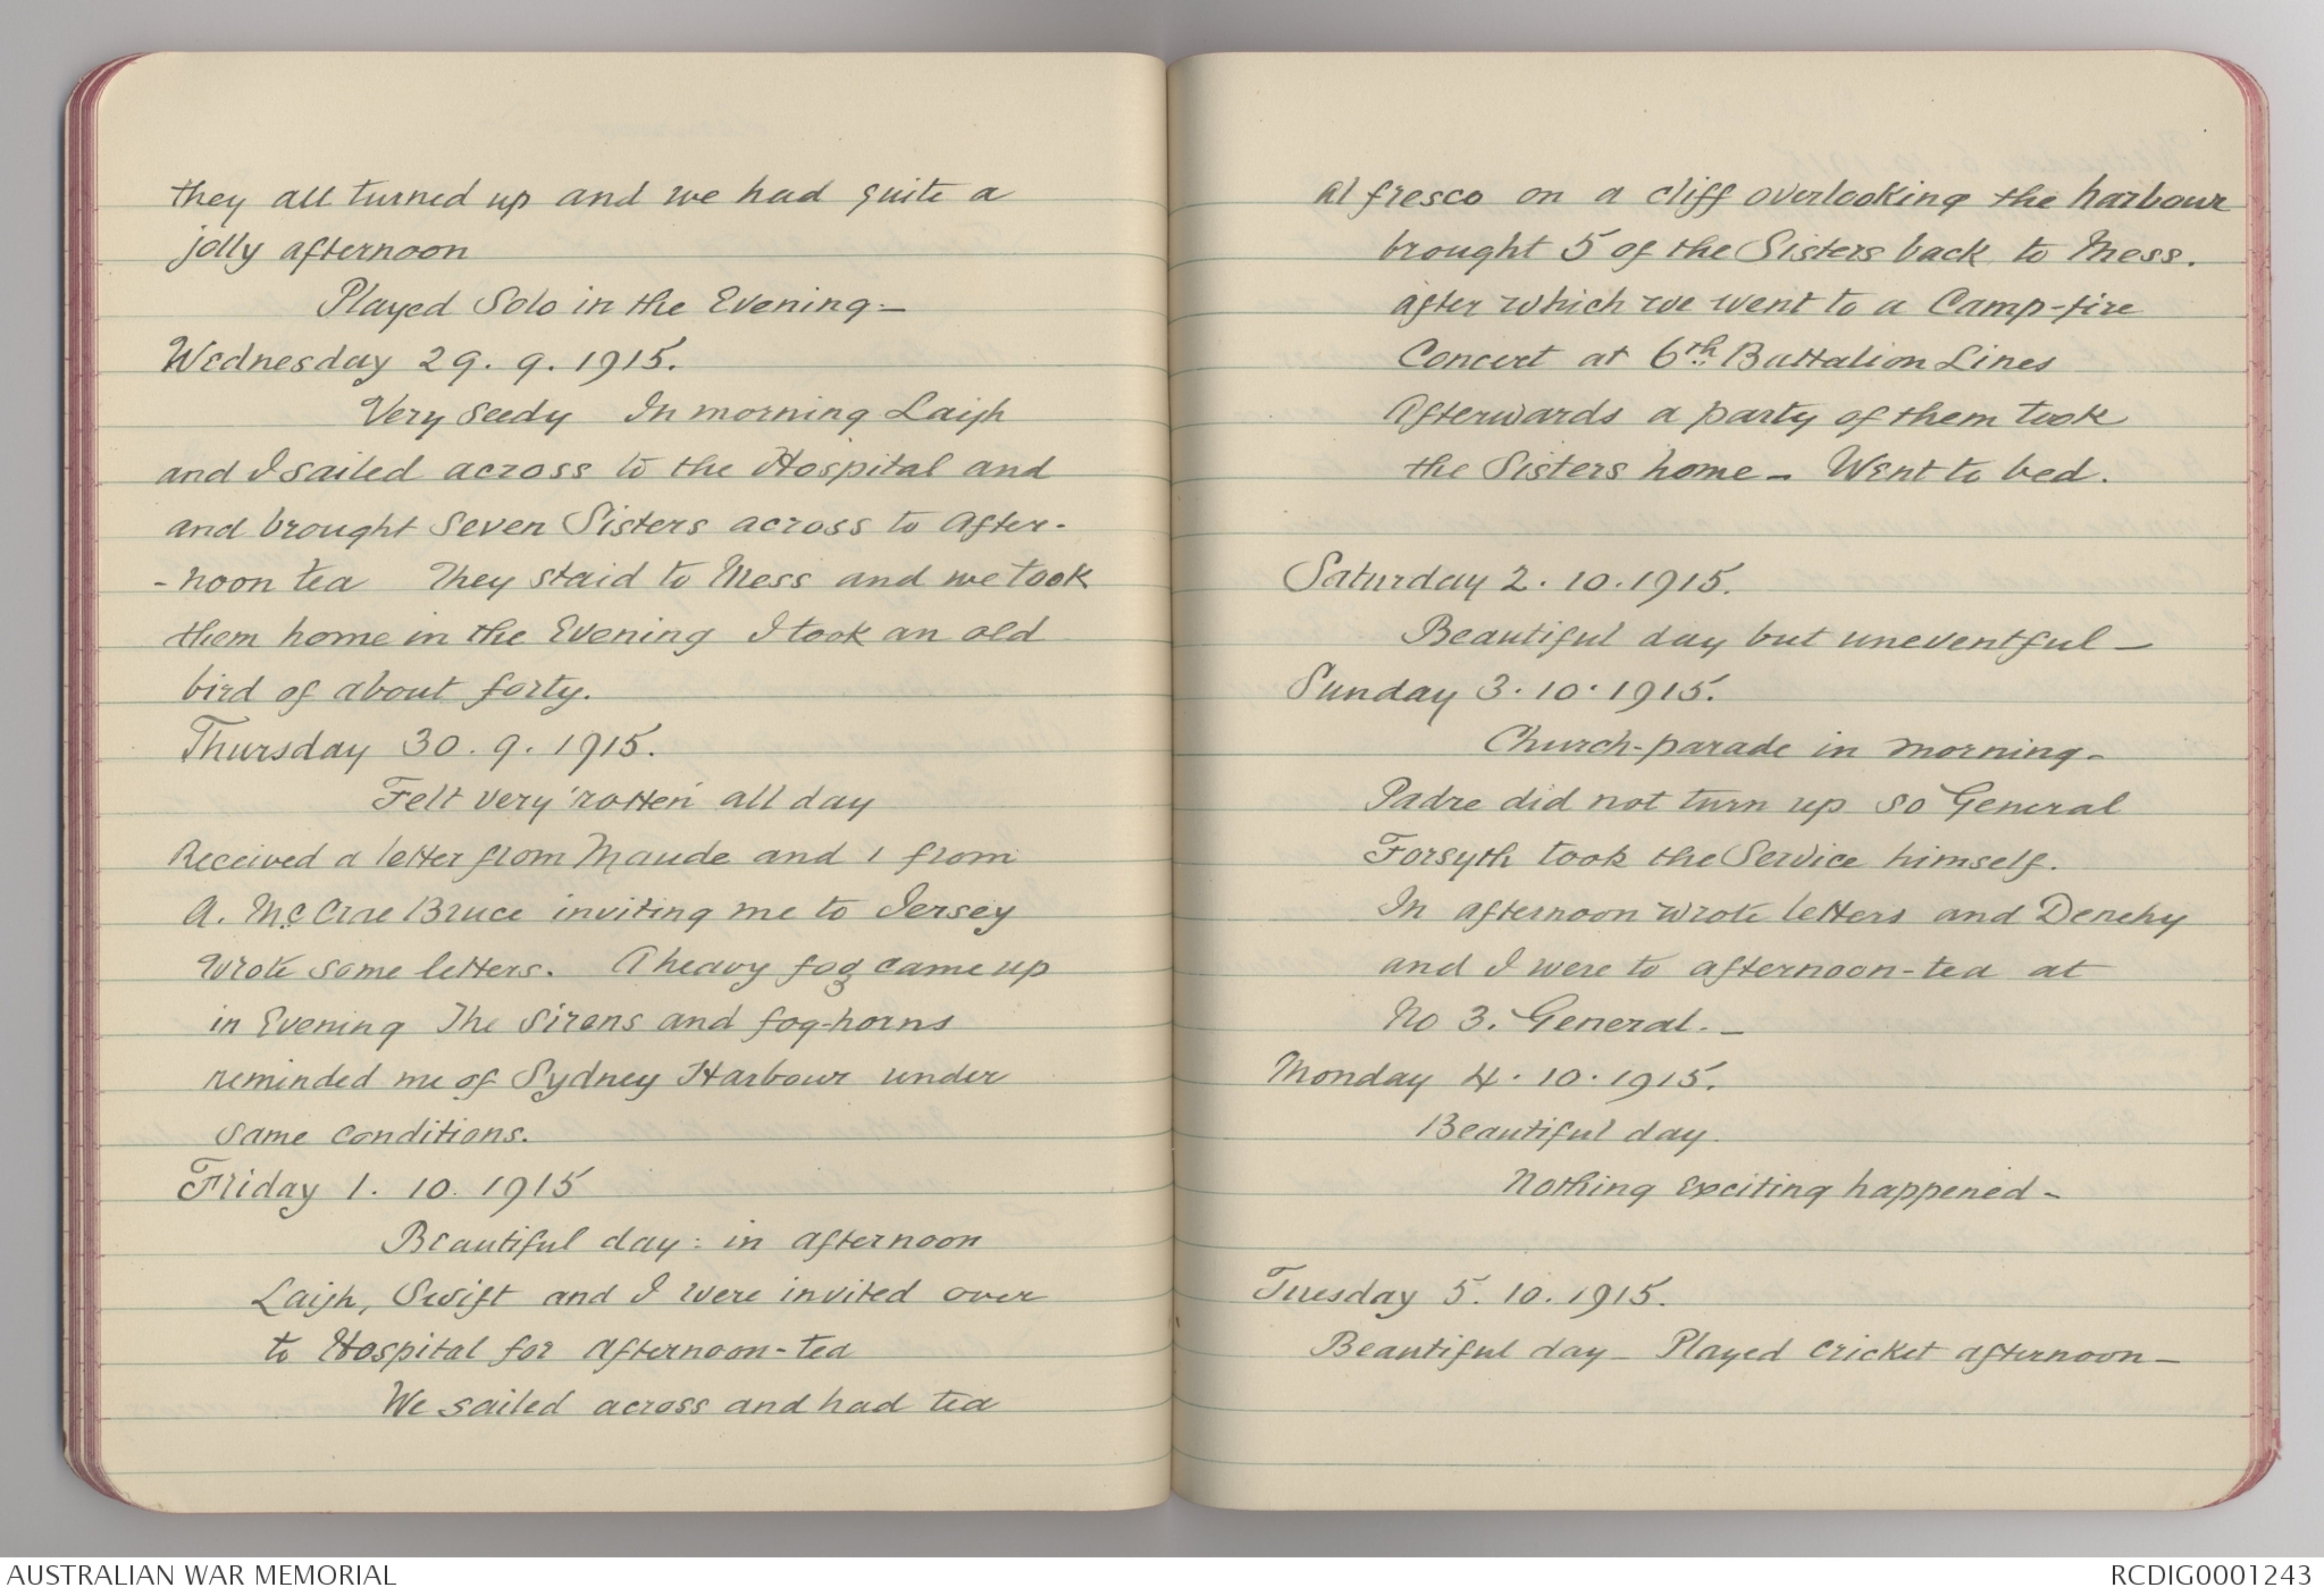 they all turned up and we had quite a
jolly afternoon
Played Solo in the Evening:—
Wednesday 29. 9. 1915.
Very seedy In morning Laigh
and I sailed across to the Hospital and
and brought Seven Sisters across to After-
- noon tea They staid to Mess and we took
them home in the Evening I took an old
bird of about forty.
Thursday 30. 9. 1915.
Felt very 'rotten' all day
Received a letter from Maude and 1 from
A. McCrae Bruce inviting me to Jersey
Wrote some letters. A heavy fog came up
in Evening The Sirens and fog-horns
reminded me of Sydney Harbour under
same conditions.
Friday 1. 10. 1915
Beautiful day: in afternoon
Laigh, Swift and I were invited over
to Hospital for afternoon-tea
We sailed across and had tea
al fresco on a cliff overlooking the harbour
brought 5 of the Sisters back to Mess.
after which we went to a Camp-fire
Concert at 6th Battalion Lines
Afterwards a party of them took
the Sisters home — Went to bed.
Saturday 2. 10. 1915.
Beautiful day but uneventful —
Sunday 3. 10. 1915.
Church-parade in morning -
Padre did not turn up so General
Forsyth took the Service himself.
In afternoon wrote letters and Denehy
and I were to afternoon-tea at
No 3. General. —
Monday 4. 10. 1915.
Beautiful day.
Nothing exciting happened -
Tuesday 5. 10. 1915.
Beautiful day — Played cricket afternoon —
AUSTRALIAN WAR MEMORIAL
RCDIG0001243